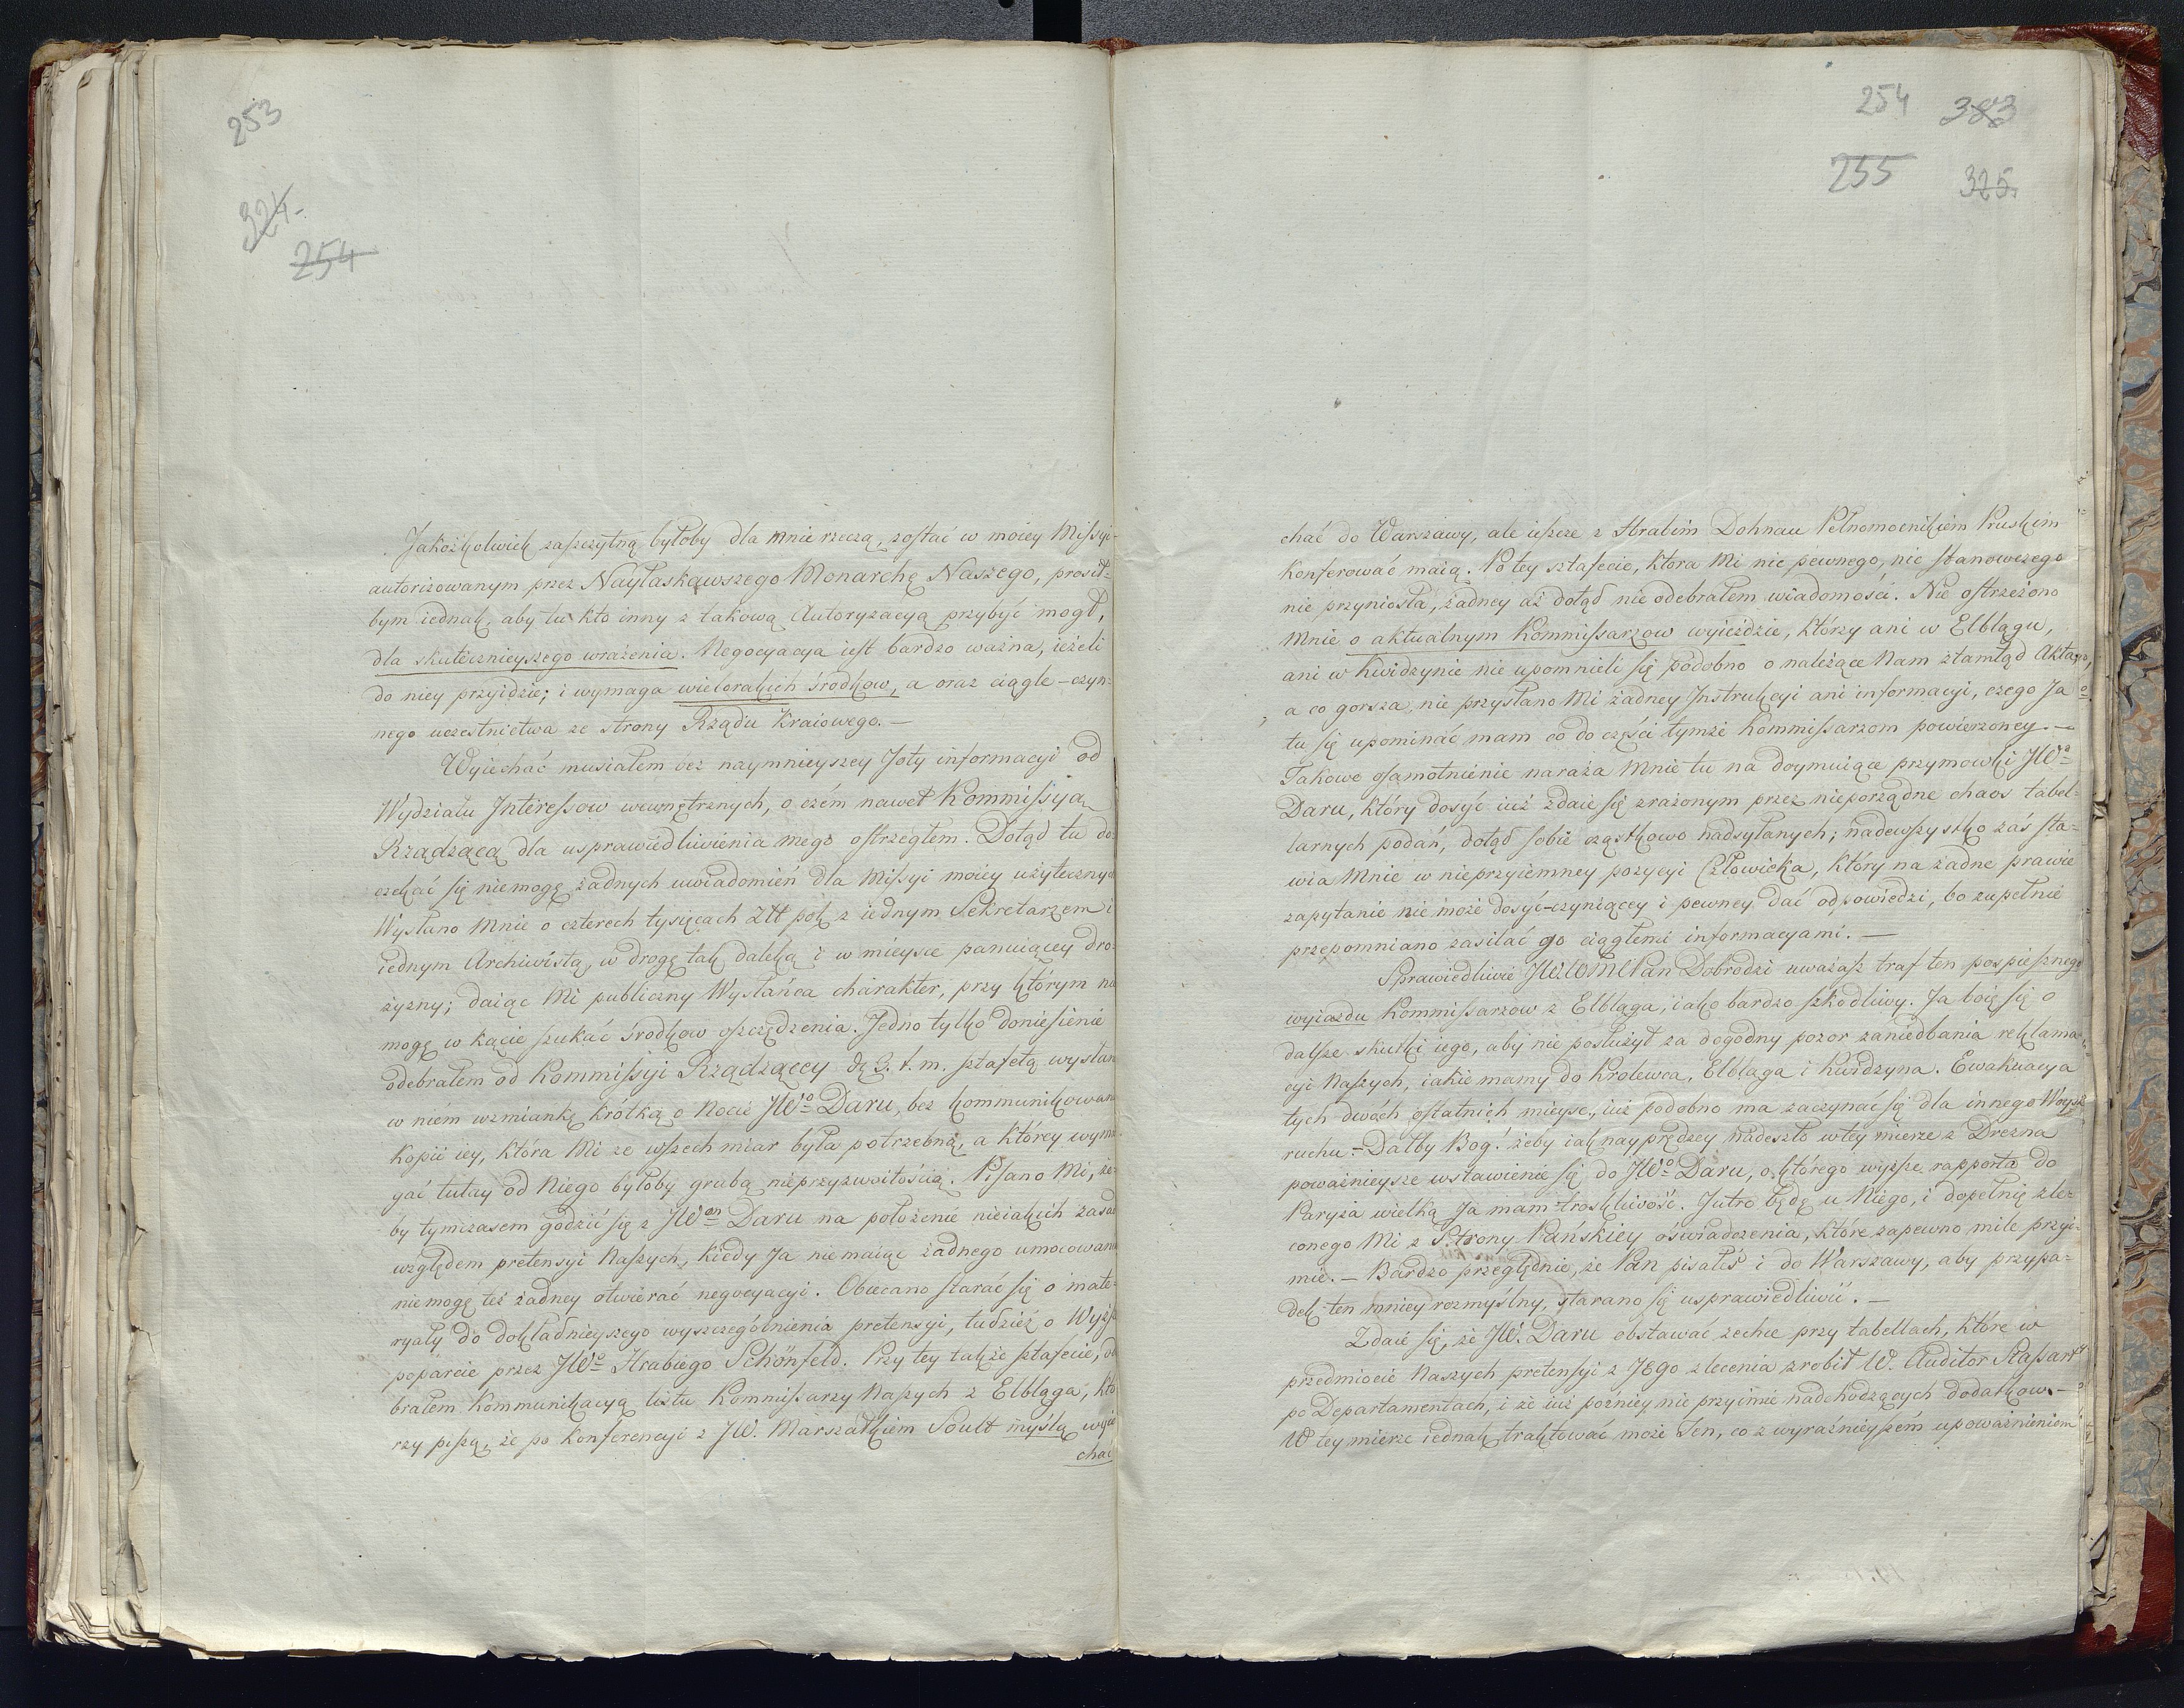 253
324.
254
Jakożkolwiek zaszczytną byłoby dla mnie rzeczą, zostać w moiey Missyi
autorisowanym przez Nayłaskawszego Monarchę Naszego, prosił-
bym iednak, aby tu kto inny z takową Autoryzacyą przybyć mogł,
dla skutecznieyszego wrażenia. Negocyacya iest bardzo ważna, ieżeli
do niey przyidzie; i wymaga wielorakich środkow, a oraz ciągle-czyn-
nego uczestnictwa ze strony Rządu Kraiowego. —
Wyiechać musiałem bez naymnieyszey Joty informacyi od
Wydziału Interessow wewnętrznych, o czém nawet Kommissyą
Rządzącą dla usprawiedliwienia mego ostrzegłem. Dotąd tu do-
czekać się niemogę żadnych uwiadomień dla Missyi moiey użytecznych
Wysłano Mnie o czterech tysiącach Złł pol z iednym Sekretarzem i
iednym Archiwistą, w drogę tak daleką i w mieysce panuiącey dro-
żyzny; daiąc Mi publiczny Wysłańca charakter, przy którym nie
mogę w kącie szukać środkow oszczędzenia. Jedno tylko doniesienie
odebrałem od Kommissyi Rządzącey dą 9. t. m. sztafetą wysłan
w niém wzmiankę krótką o Nocie JWo Daru, bez kommunikowan
kopii iey, która Mi ze wszech miar była potrzebną, a którey wyma-
gać tutay od Niego byłoby grubą nieprzyzwoitością. Pisano Mi, że-
by tymczasem godzić się z JWem Daru na położenie nieiakich zasad
względem pretensyi Naszych, kiedy Ja nie maiąc żadnego umocowania
niemogę też żadney otwierać negocyacyi. Obiecano starać się o mate-
ryały do dokładnieyszego wyszczególnienia pretensyi, tudzież o Wyższe
poparcie przez JWo Hrabiego Schönfeld. Przy tey także sztafecie, ode-
brałem Kommunikacyą listu Kommissarzy Naszych z Elbląga, któ-
rzy piszą, że po Konferencyi z JW. Marszałkiem Soult myślą wyie
chać
254 383
255 325.
chać do Warszawy, ale ieszcze z Hrabim Dohnau Pełnomocnikiem Pruskim
Konferować maią. Po tey sztafecie, która Mi nic pewnego, nic stanowczego
nie przyniosła, żadney aż dotąd nie odebrałem wiadomości. Nie ostrzeżono
Mnie o aktualnym Kommissarzow wyieździe, którzy ani w Elblągu,
ani w Kwidzynie nie upomnieli się podobno o należące Nam ztamtąd Akta,
a co gorsza, nie przysłano Mi żadney Instrukcyi ani informacyi, czego Ja
tu się upominać mam co do części tymże Kommissarzom powierzoney. —
Takowe osamotnienie naraża Mnie tu na doymuiące przymowki JWo
Daru, który dosyć iuż zdaie się zrażonym przez nieporządne chaos tabel-
larnych podań, dotąd sobie cząstkowo nadsyłanych; nadewszystko zaś sta-
wia Mnie w nieprzyiemney pozycyi Człowieka, który na żadne prawie
zapytanie nie może dosyć-czyniącey i pewney dać odpowiedzi, bo zupełnie
przepomniano zasilać go ciągłemi informacyami. —
Sprawiedliwie JWWMPan Dobrodzi uważasz traf ten pospiesznego
wyiazdu Kommissarzow z Elbląga, iako bardzo szkodliwy. Ja boię się o
dalsze skutki iego, aby nie posłużył za dogodny pozor zaniedbania reklama-
cyi Naszych, iakie mamy do Krolewca, Elbląga i Kwidzyna. Ewakuacya
tych dwóch ostatnich mieysc, iuż podobno ma zaczynać się dla innego Woysk
ruchu. - Dałby Bog! żeby iak nayprędzey nadeszło w tey mierze z Drezna
poważnieysze wstawienie się do JWo Daru, o którego wyższe rapporta do
Paryża wielką Ja mam troskliwość. Jutro będę u Niego, i dopełnię zle-
conego Mi z Strony Pańskiey oświadczenia, które zapewno mile przyi-
mie. — Bardzo przeględnie, że Pan pisałeś i do Warszawy, aby przypa-
dek ten mniey rozmyślny, starano się usprawiedliwić. —
Zdaie się, że JW. Daru obstawać zechce przy tabellach, które w
przedmiocie Naszych pretensyi z JEgo zlecenia zrobił W. Auditor Stassart
po Departamentach, i że iuż poźniey nie przyimie nadchodzących dodatkow. —
W tey mierze iednak traktować może Ten, co z wyraźnieyszém upoważnieniem